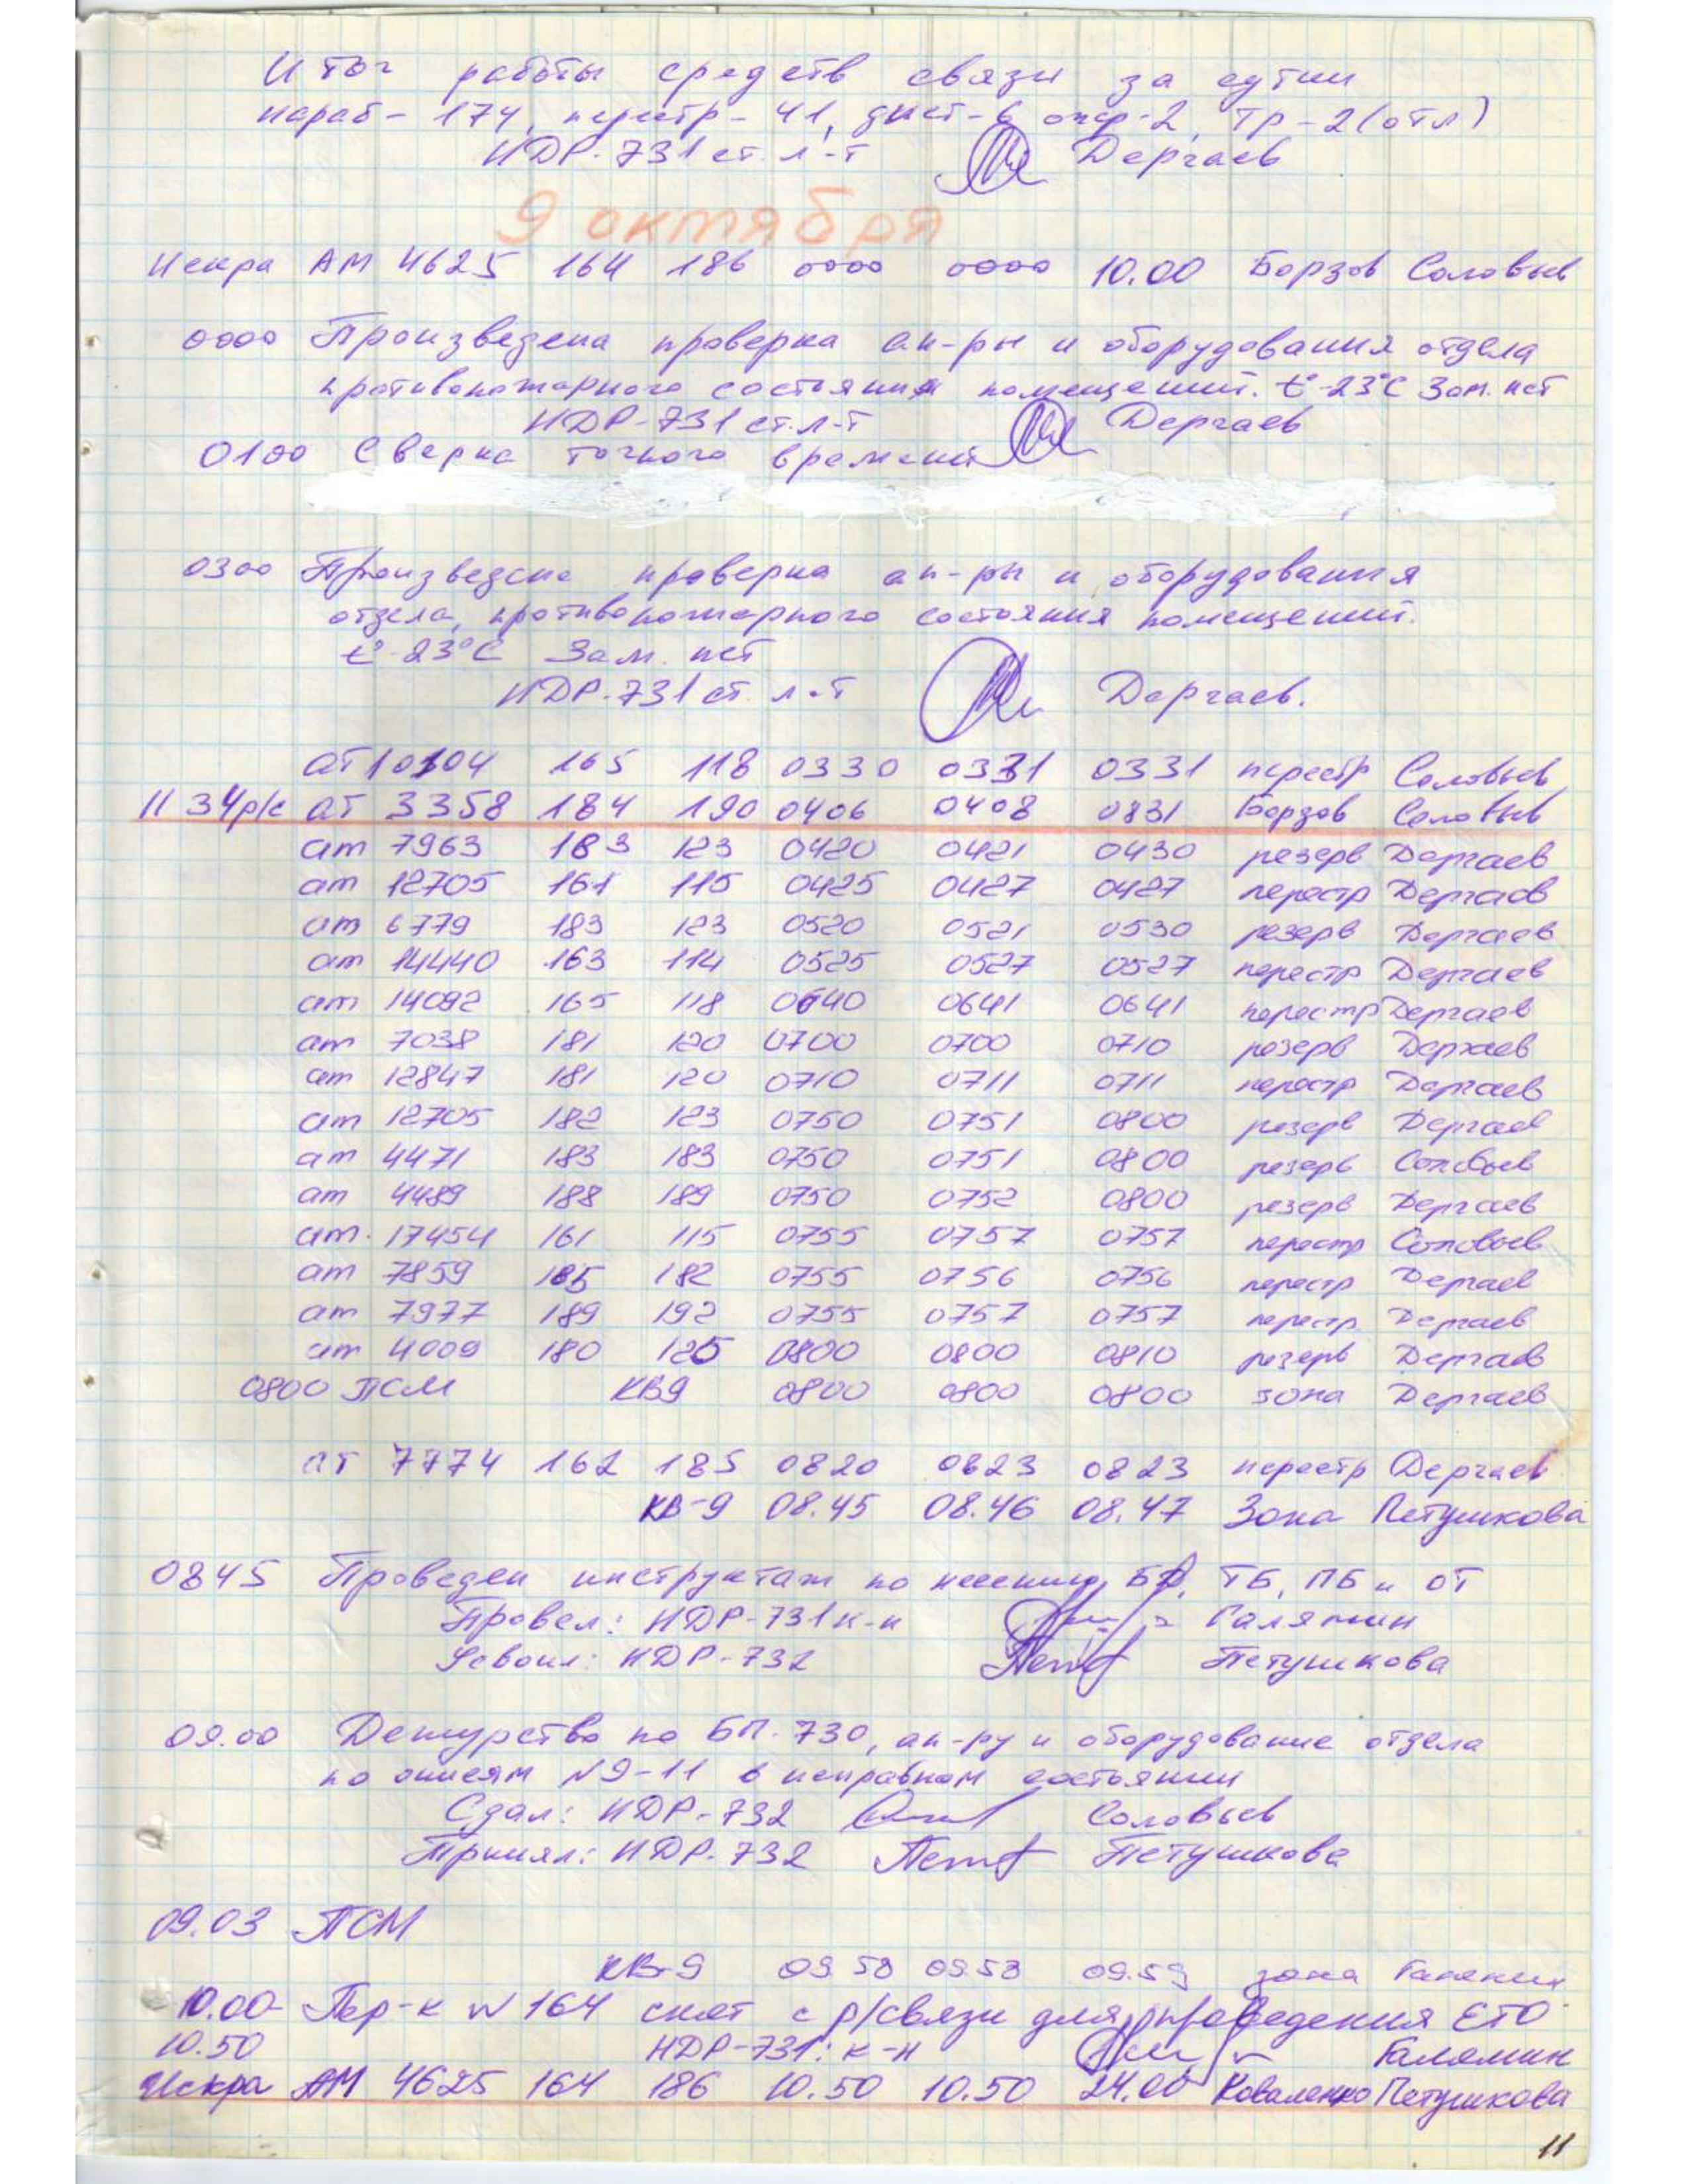 Итог работы средств связи за сутки
нараб - 174, перестр - 41, дист - 6 опер - 2, Тр - 2 (отл)
НДР-731 ст. л-т Дергаев
9 октября
Искра АМ 4625 164 186 0000 0000 10.00 Борзов Соловьев
0000 Произведена проверка ап-ры и оборудования отдела
противопожарного состояния помещений. t°-23°C Зам. нет
НДР-731 ст. л-т Дергаев
0100 Сверка точного времени
0300 Произведена проверка ап-ры и оборудования
отдела, противопожарного состояния помещений.
t°-23°C Зам. нет
НДР-731 ст. л-т Дергаев.
ат 10104 165 118 0330 0331 0331 перестр Соловьев
1134р/с ат 3358 184 190 0406 0408 0831 Борзов Соловьев
ат 7963 183 123 0420 0421 0430 резерв Дергаев
ат 12705 161 115 0425 0427 0427 перестр Дергаев
ат 6779 183 123 0520 0521 0530 резерв Дергаев
ат 14440 163 114 0525 0527 0527 перестр Дергаев
ат 14092 165 118 0640 0641 0641 перестр Дергаев
ат 7038 181 120 0700 0700 0710 резерв Дергаев
ат 12847 181 120 0710 0711 0711 перестр Дергаев
ат 12705 182 123 0750 0751 0800 резерв Дергаев
ат 4471 183 183 0750 0751 0800 резерв Соловьев
ат 4489 188 189 0750 0752 0800 резерв Дергаев
ат. 17454 161 115 0755 0757 0757 перестр Соловьев
ат 7859 185 182 0755 0756 0756 перестр Дергаев
ат 7977 189 192 0755 0757 0757 перестр Дергаев
ат 4009 180 125 0800 0800 0810 резерв Дергаев
0800 ПСМ КВ9 0800 0800 0800 зона Дергаев
ат 7774 162 185 0820 0823 0823 перестр Дергаев
КВ-9 08.45 08.46 08.47 Зона Петушкова
0845 Проведен инструктаж по несению БД, ТБ, ПБ и ОТ
Провел: НДР-731 к-н Галямин
Усвоил: НДР-732 Петушкова
09.00 Дежурство по БП-730, ап-ру и оборудование отдела
по описям №9-11 в исправном состоянии
Сдал: НДР-732 Соловьев
Принял: НДР-732 Петушкова
09.03 ПСМ
КВ-9 09 58 09 58 09.59 зона Галямин
10.00- Пер-к №164 снят с р/связи для проведения ЕТО
10.50 НДР-731: к-н Галямин
Искра АМ 4625 164 186 10.50 10.50 24.00 Коваленко Петушкова
11